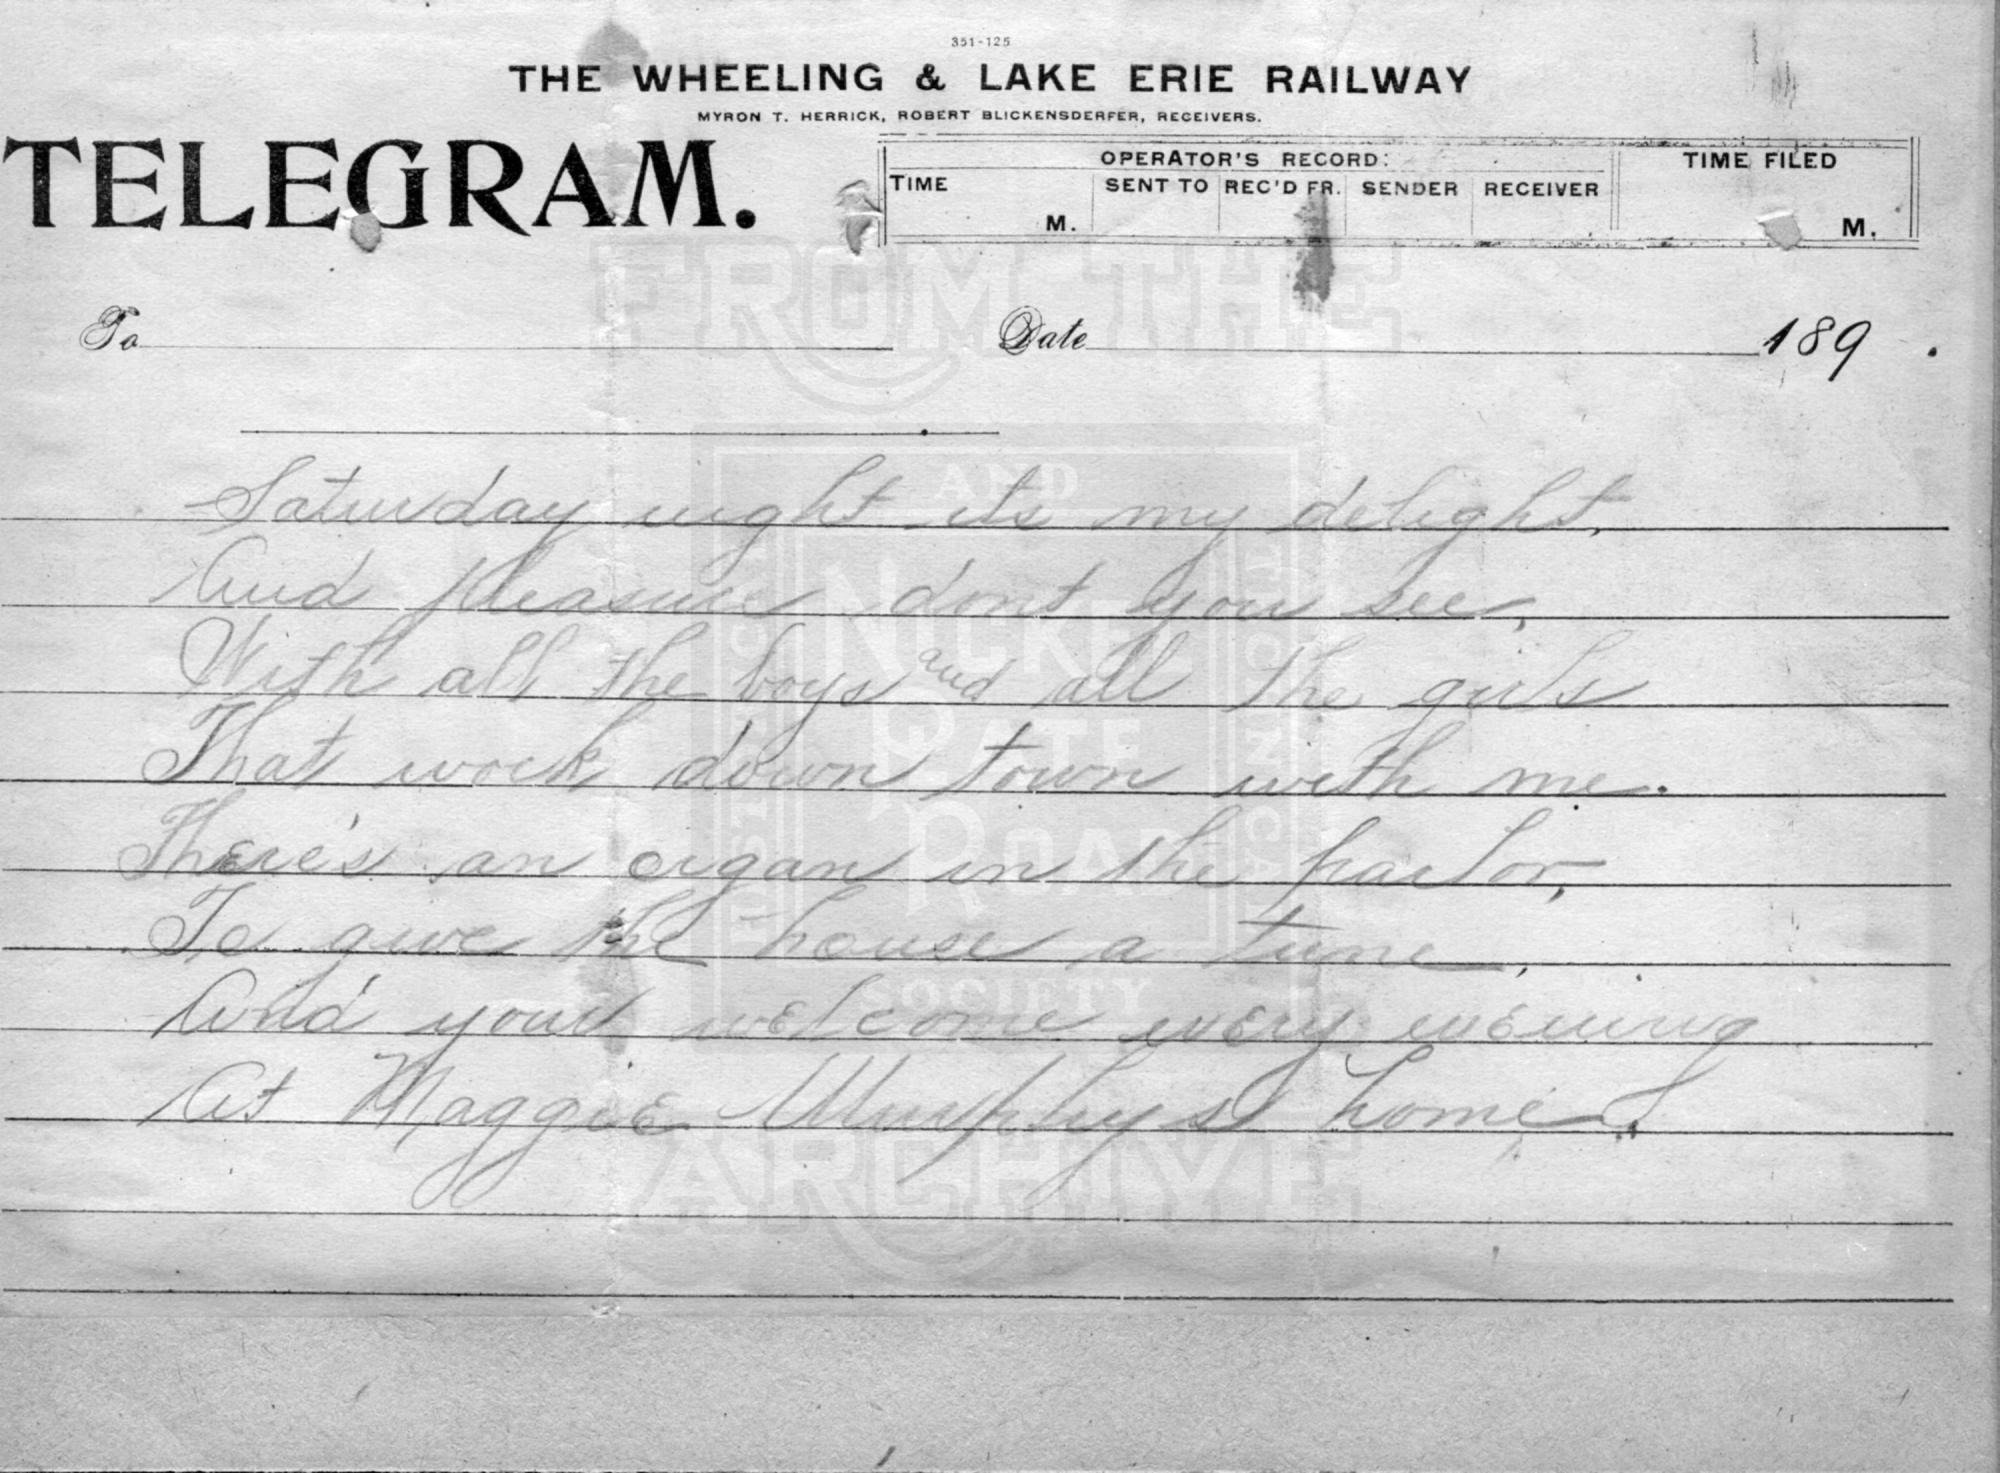 351-125
THE WHEELING & LAKE ERIE RAILWAY
MYRON T. HERRICK, ROBERT BLICKENSDERFER, RECEIVERS.
TELEGRAM.
OPERATOR'S RECORD:
TIME FILED
TIME
SENT TO
REC'D FR.
SENDER
RECEIVER
M.
M.
To
Date
189 .
Saturday night its my delight,
And pleasure dont you see,
With all the boys and all the girls
That work down town with me.
There's an organ in the parlor,
To give the house a tune,
And your welcome every evening
At Maggie Murphys home.
FROM THE
NICKEL PLATE ROAD
HISTORICAL AND TECHNICAL
SOCIETY
ARCHIVE